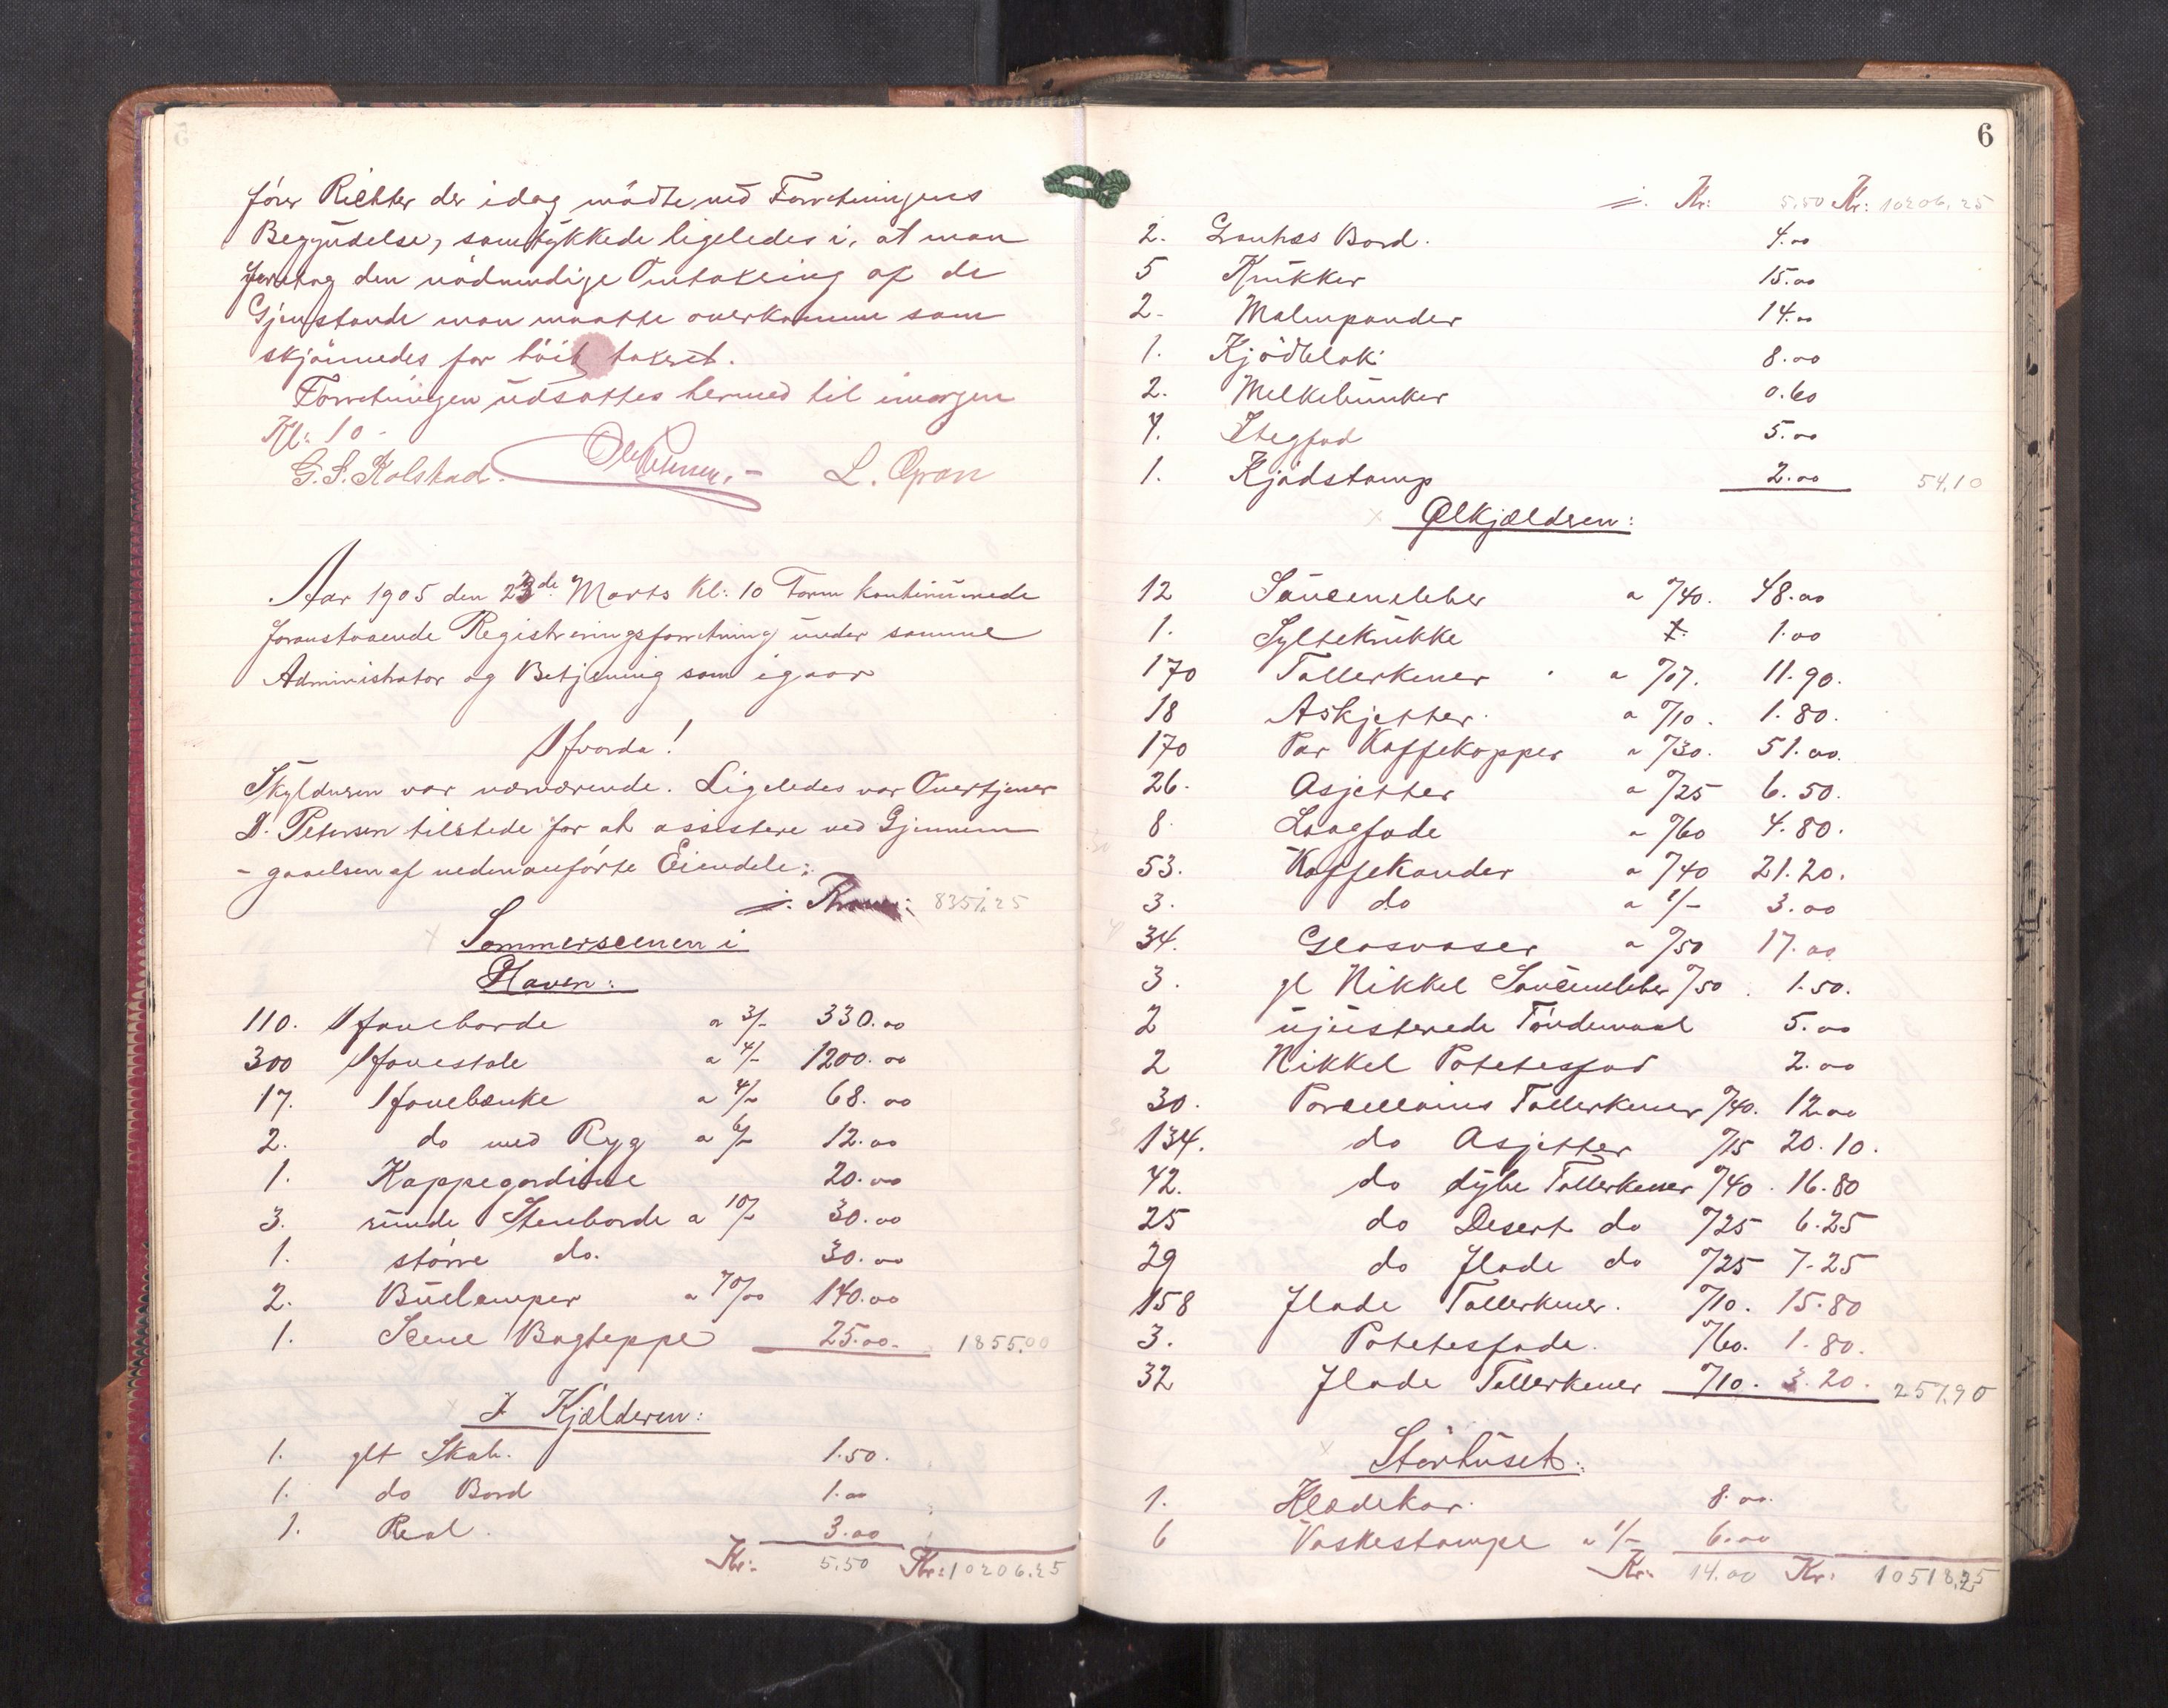 fører Richter der idag mødte ved Forretningens
Begyndelse, samtykkede ligeledes i, at man
foretog den nødvendige Omtaxering af de
Gjenstande man maatte overkomme som
skjønnedes for høit taxeret.
Forretningen udsattes hermed til imorgen
Kl: 10 -
G. S. Kolstad. Ole Petersen. - L. Opran
Aar 1905 den 23de Marts Kl: 10 Form kontinuerede
foranstaaende Registreringsforretning under samme
Administrator og Betjening som igaar
Hvorda!
Skyldneren var nærværende. Ligeledes var Overtjener
D. Petersen tilstede for at assistere ved Gjennem
- gaaelsen af nedenanførte Eiendele:
÷. Kroner: 8351,25
Sommerscenen i
Haven:
110. Haveborde a 3/- 330.00
300 Havestole a 4/- 1200.00
17. Havebænke a 4/- 68.00
2. do med Ryg a 6/- 12.00
1. Kappegardine 20.00
3. runde Stenborde a 10/- 30.00
1. større do. 30.00
2. Buelamper a 70/00 140.00
1. Scene Bagteppe 25.00. 1855.00
I Kjælderen:
1. glt Skab. 1.50.
1. do Bord 1.00
1. Reol. 3.00
Kr: 5.50 Kr: 10206.25
6
÷. Kr: 5.50 Kr: 10206,25
2. Bord. 4.00
5 Krukker 15.00
2. Malmpander 14.00
1. Kjødblok 8.00
2. Melkebunker 0.60
4. Stegfad 5.00
1. Kjødstamp 2.00 54,10
Ølkjælderen:
12 Sauceneleber a "/40. 48.00
1. Syltekrukke 1.00
170 Tallerkener a "/07. 11.90.
18 Askjetter. a "/10. 1.80.
170 Par Kaffekopper a "/30. 51.00.
26. Asjetter a "/25 6.50.
8 Langfade a "/60 4.80.
53. Kaffekander a "/40 21.20.
3. do a 1/- 3.00
34. Glasvaser a "/50 17.00
3. gl Nikkel "/50. 1.50.
2 ujusterede Tøndemaal 5.00
2 Nikkel Potetesfad 2.00
30. Porcellains Tallerkener "/40. 12.00
134. do Asjetter "/15 20.10.
42. do dybe Tallerkener "/40. 16.80
25 do Desert do "/25 6.25
29 do flade do "/25 7.25
158 flade Tallerkener. "/10. 15.80
3. Potetesfade. "/60. 1.80.
32 flade Tallerkener "/10. 3.20. 257,90
Størhuset:
1. Klædekar. 8.00.
6 Vaskestampe a 1/- 6.00
Kr: 14.00 Kr: 10518,25